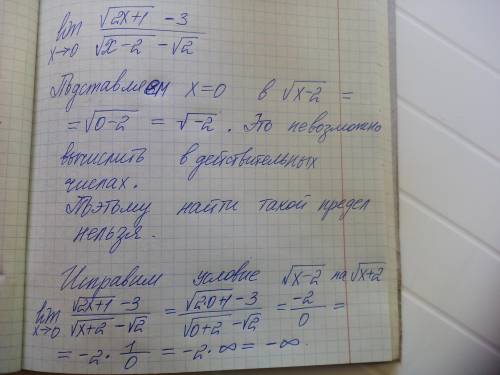 lim √(2x+1) - 3
x→0 √(x-2) - √2
Подставляем x=0 в √(x-2) =
= √(0-2) = √-2 . Это невозможно
вычислить в действительных
числах.
Поэтому найти такой предел
нельзя.
Исправим условие √(x-2) на √(x+2)
lim √(2x+1) - 3 / √(x+2) - √2 = √(2·0+1) - 3 / √(0+2) - √2 = -2 / 0 =
x→0
= -2 · 1/0 = -2 · ∞ = -∞.